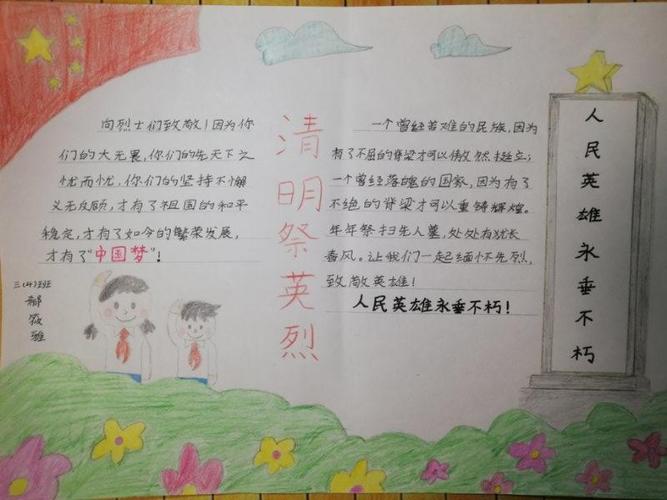 向烈士们致敬！因为你
们的大无畏，你们的先天下之
忧而忧，你们的坚持不懈
义无反顾，才有了祖国的和平
稳定，才有了如今的繁荣发展，
才有了“中国梦”！
清明祭英烈
一个曾经苦难的民族，因为
有了不屈的脊梁才可以傲然挺立；
一个曾经落魄的国家，因为有了
不绝的脊梁才可以重铸辉煌。
年年祭扫先人墓，处处有犹长
春风。让我们一起缅怀先烈，
致敬英雄！
人民英雄永垂不朽！
人民英雄永垂不朽